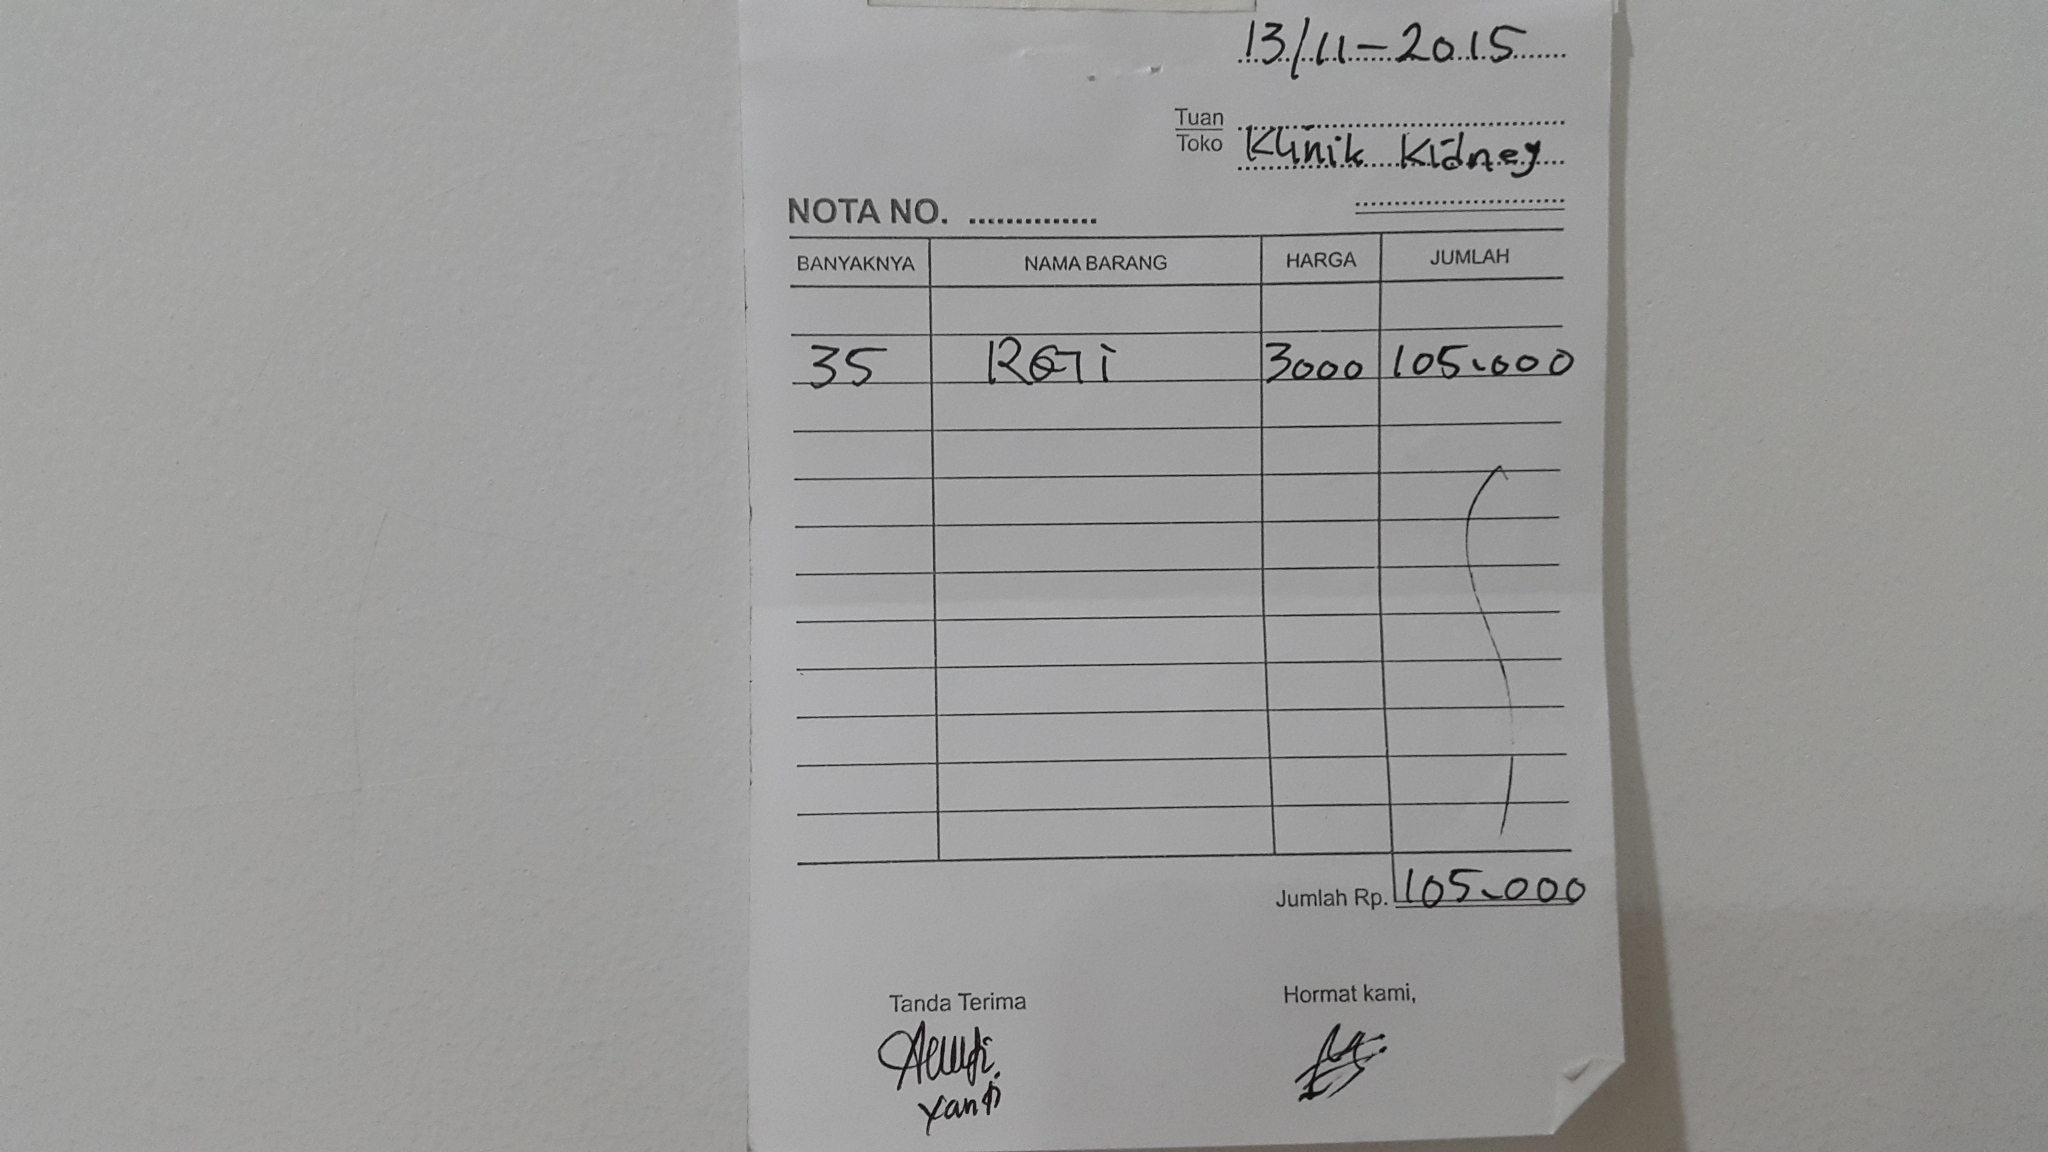 13/11-2015
Tuan
Toko Klinik Kidney
NOTA NO. ..............
BANYAKNYA NAMA BARANG HARGA JUMLAH
35 ROTi 3000 105.000
Jumlah Rp. 105.000
Tanda Terima Hormat kami,
Yanti